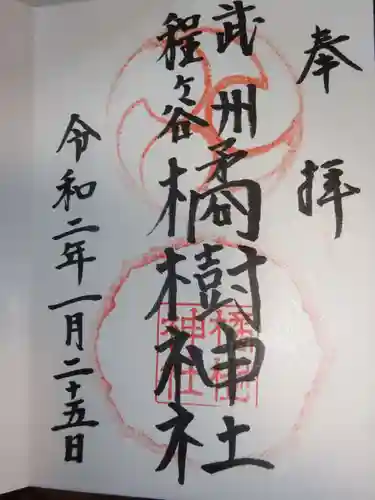 奉拝
武州
程ヶ谷
橘樹神社
令和二年一月二十五日
橘樹
神社